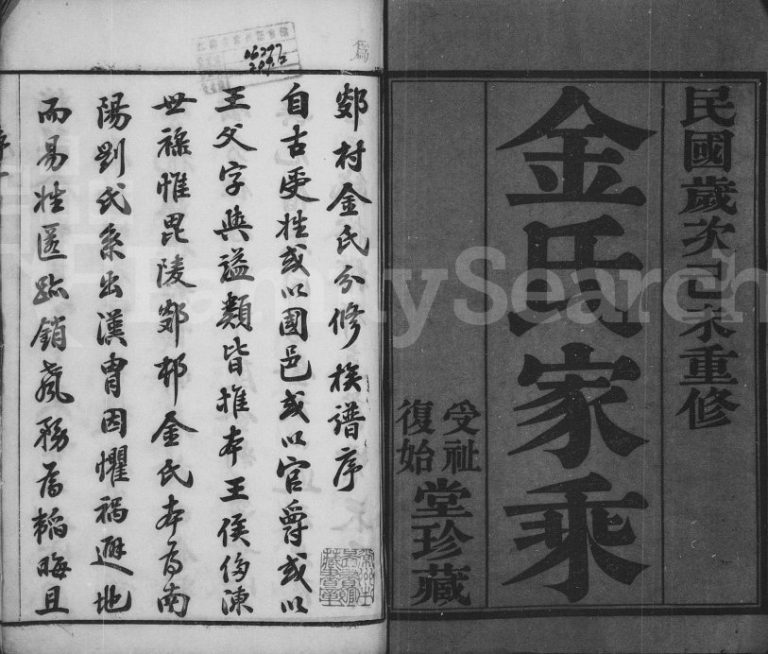 民國歲次己未重修
金氏家乘
受祉
復始
堂珍藏
鄭村金氏分修族譜序
自古受姓或以國邑或以官爵或以
王父字與謚類皆推本王侯侈陳
世祿惟毘陵鄭邨金氏本爲南
陽劉氏系出漢胄因懼禍避地
而易姓匿跡銷聲務爲韜晦且
序一
FamilySearch